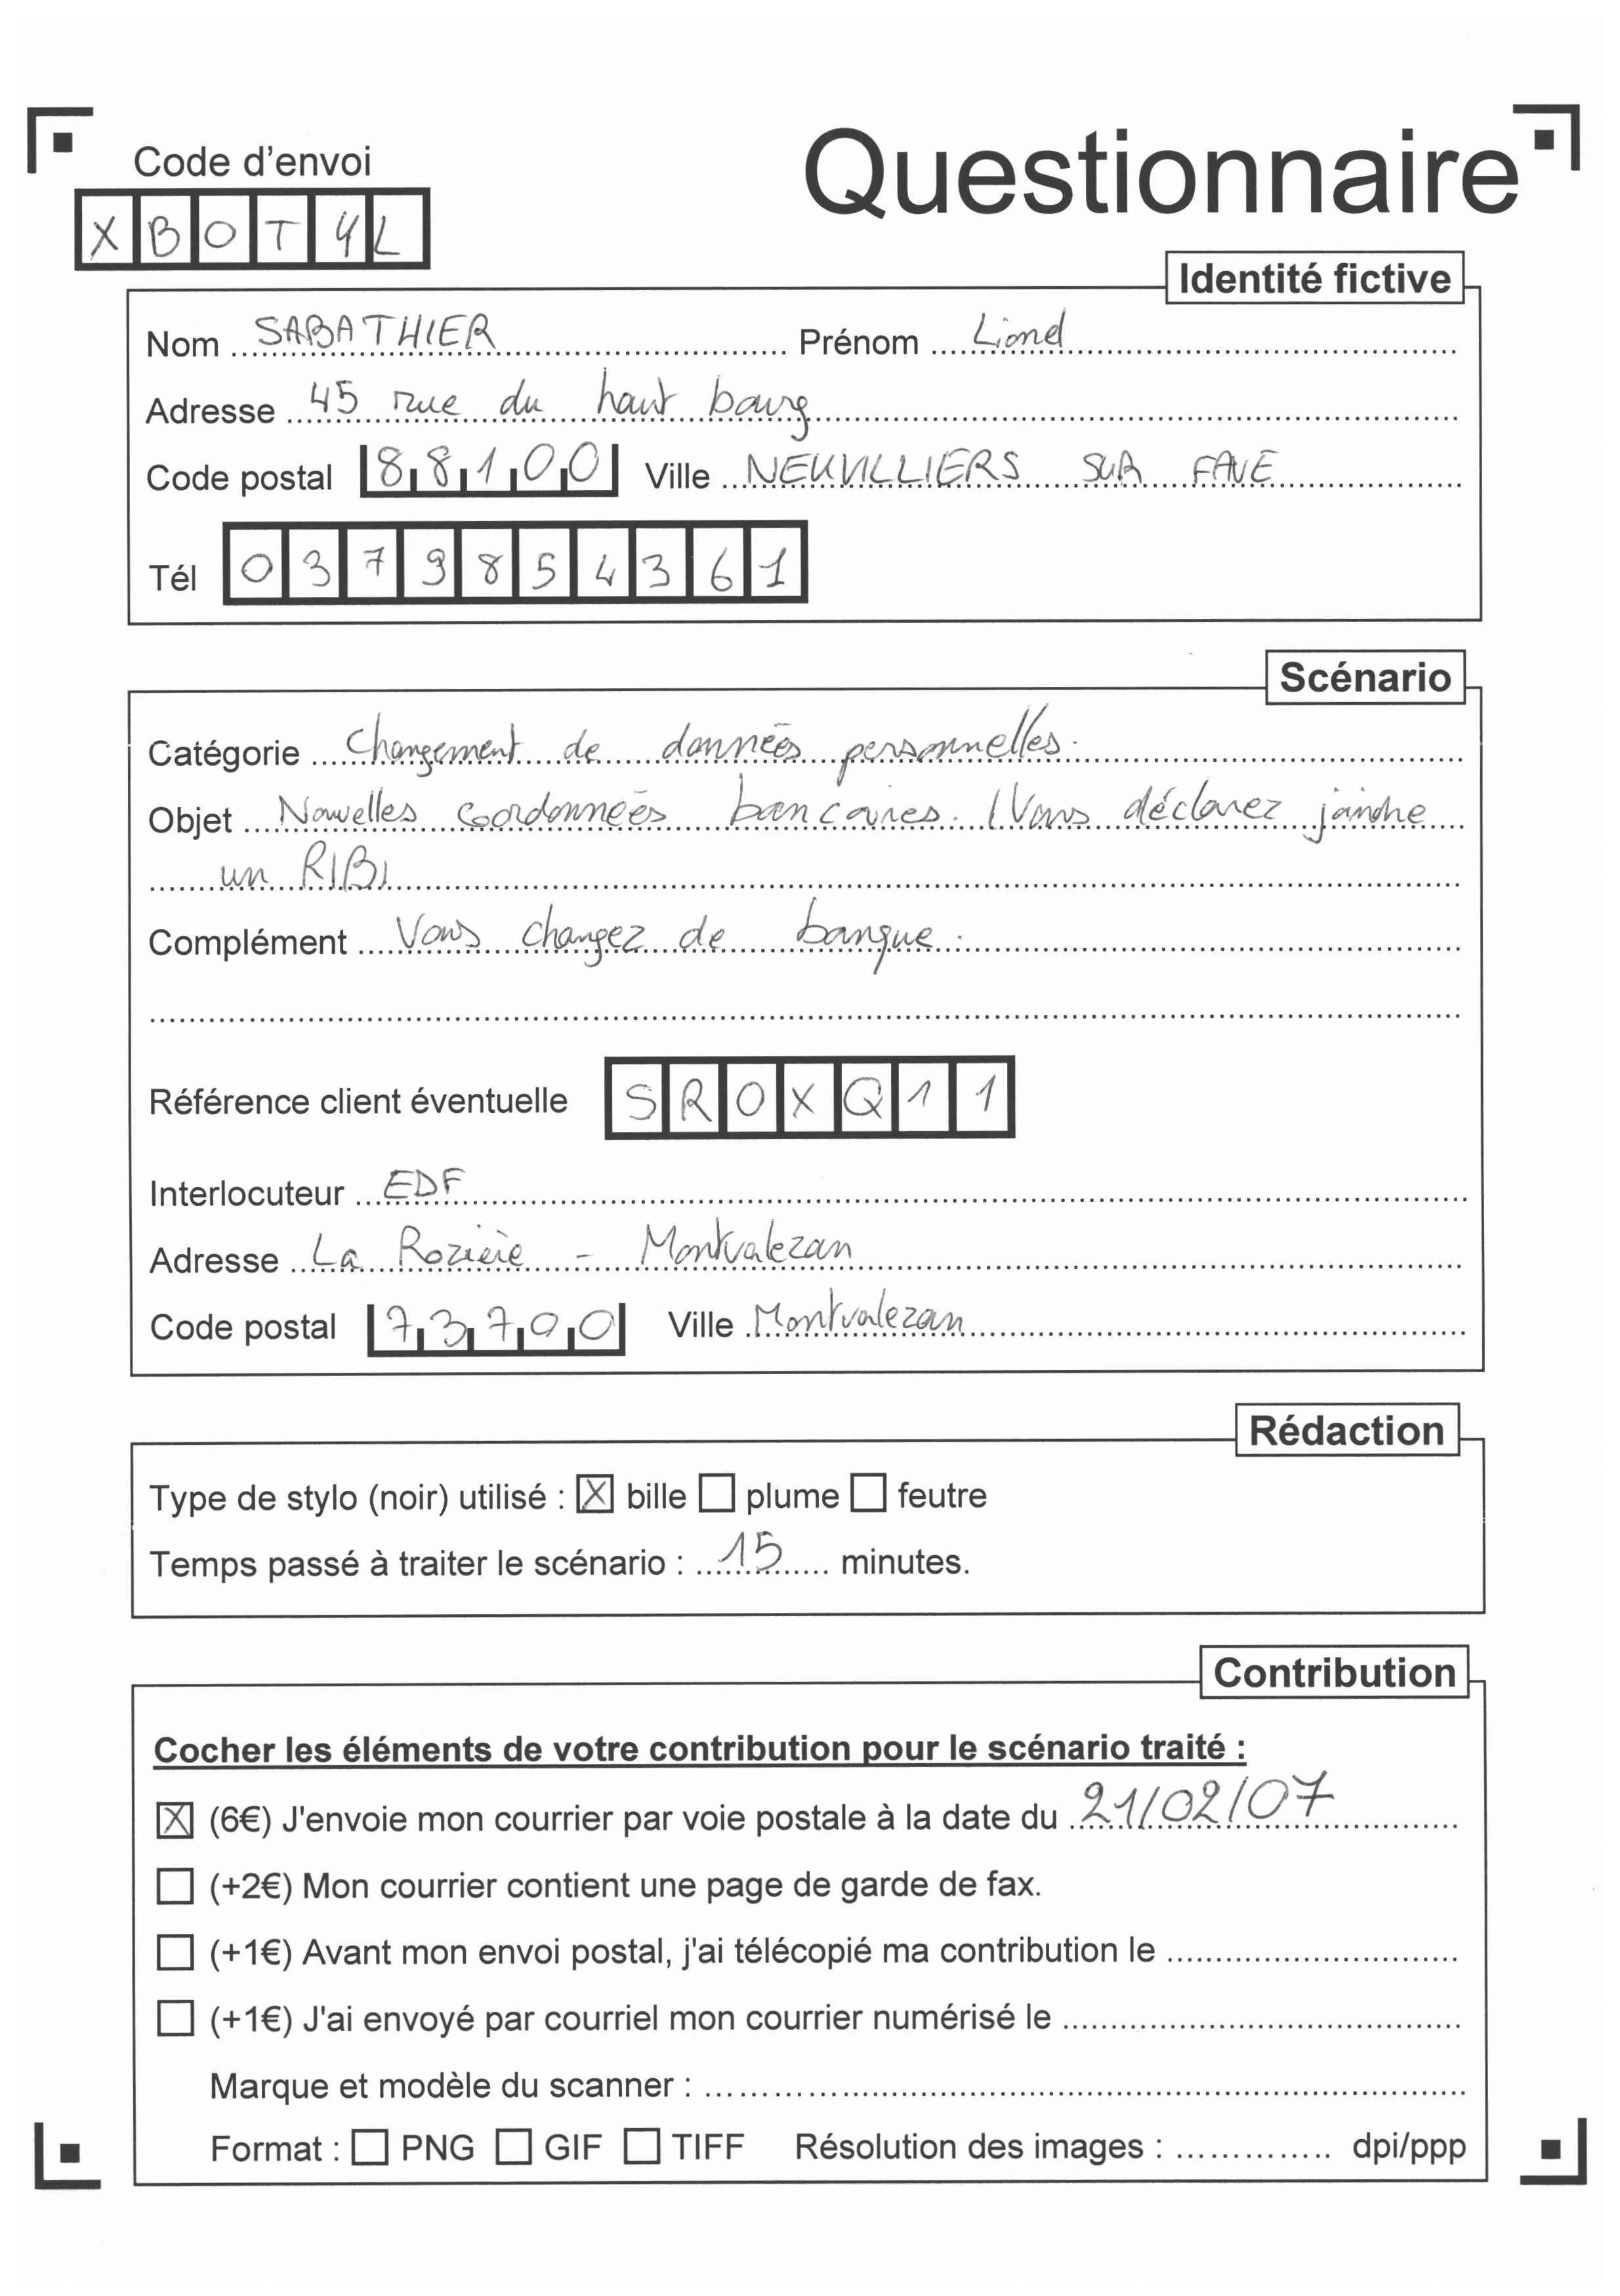 Code d'envoi
Questionnaire
XBOT4L
Identité fictive
Nom SABATHIER Prénom Lionel
Adresse 45 rue du haut bourg
Code postal 88100 Ville NEUVILLIERS SUR FAVE
Tél 0379854361
Scénario
Catégorie Changement de données personnelles.
Objet Nouvelles coordonnées bancaires. (Vous déclarez joindre
un RIB)
Complément Vous changez de banque.
Référence client éventuelle SROXQ11
Interlocuteur EDF
Adresse La Rozière - Montvalezan
Code postal 73700 Ville Montvalezan
Rédaction
Type de stylo (noir) utilisé : ☒ bille ☐ plume ☐ feutre
Temps passé à traiter le scénario : 15 minutes.
Contribution
Cocher les éléments de votre contribution pour le scénario traité :
☒ (6€) J'envoie mon courrier par voie postale à la date du 21/02/07
☐ (+2€) Mon courrier contient une page de garde de fax.
☐ (+1€) Avant mon envoi postal, j'ai télécopié ma contribution le
☐ (+1€) J'ai envoyé par courriel mon courrier numérisé le
Marque et modèle du scanner :
Format : ☐ PNG ☐ GIF ☐ TIFF Résolution des images : dpi/ppp